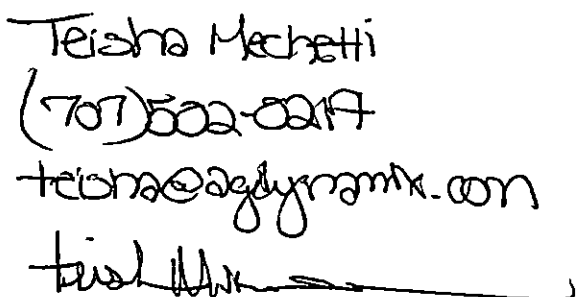 Teisha Mechetti
(707)502-0217
teisha@agdynamix.com